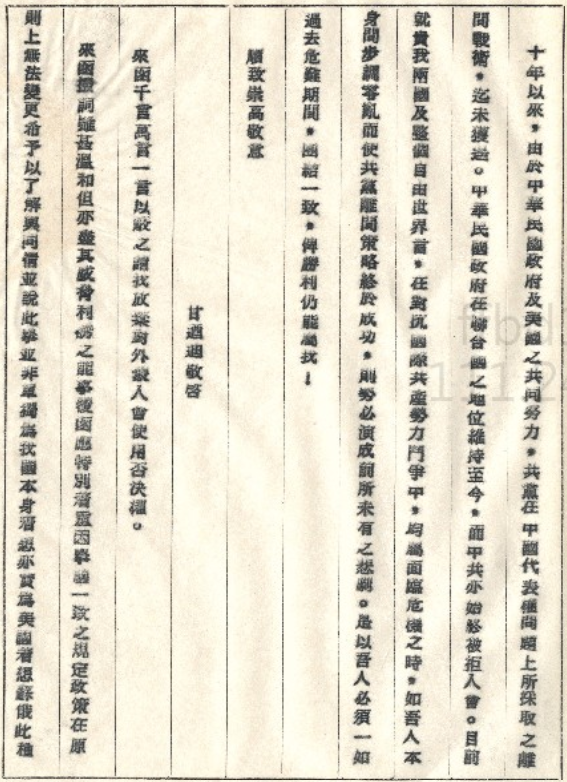 十年以來，由於中華民國政府及美國之共同努力，共黨在中國代表權問題上所採取之離
間戰術，迄未獲逞。中華民國政府在聯合國之地位維持至今，而中共亦始終被拒入會。目前
就貴我兩國及整個自由世界言，在對抗國際共產勢力鬥爭中，均屬面臨危機之時，如吾人本
身間步調零亂而使共黨離間策略終於成功，則勢必演成前所未有之悲劇。是以吾人必須一如
過去危難期間，團結一致，俾勝利仍能屬我！
順致崇高敬意
甘迺迪敬啓
來函千言萬言一言以蔽之請我放棄對外蒙入會使用否決權。
來函措詞雖甚溫和但亦盡其威脅利誘之能事復函應特別著重因舉國一致之規定政策在原
則上無法變更希予以了解與同情並說此舉並非單獨為我國本身着想亦實為美國着想蘇俄此種